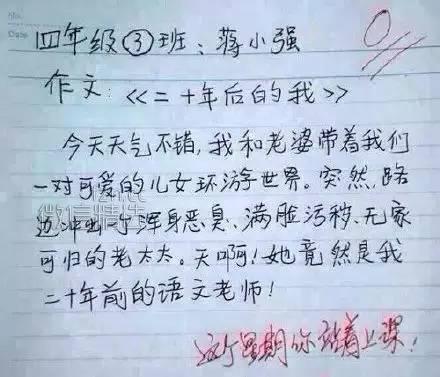 No.
Date
四年级③班：蒋小强
0
作文：《二十年后的我》
今天天气不错，我和老婆带着我们
一对可爱的儿女环游世界。突然，路
边冲出了浑身恶臭、满脸污秽、无家
可归的老太太。天啊！她竟然是我
二十年前的语文老师！
这个星期你站着上课！